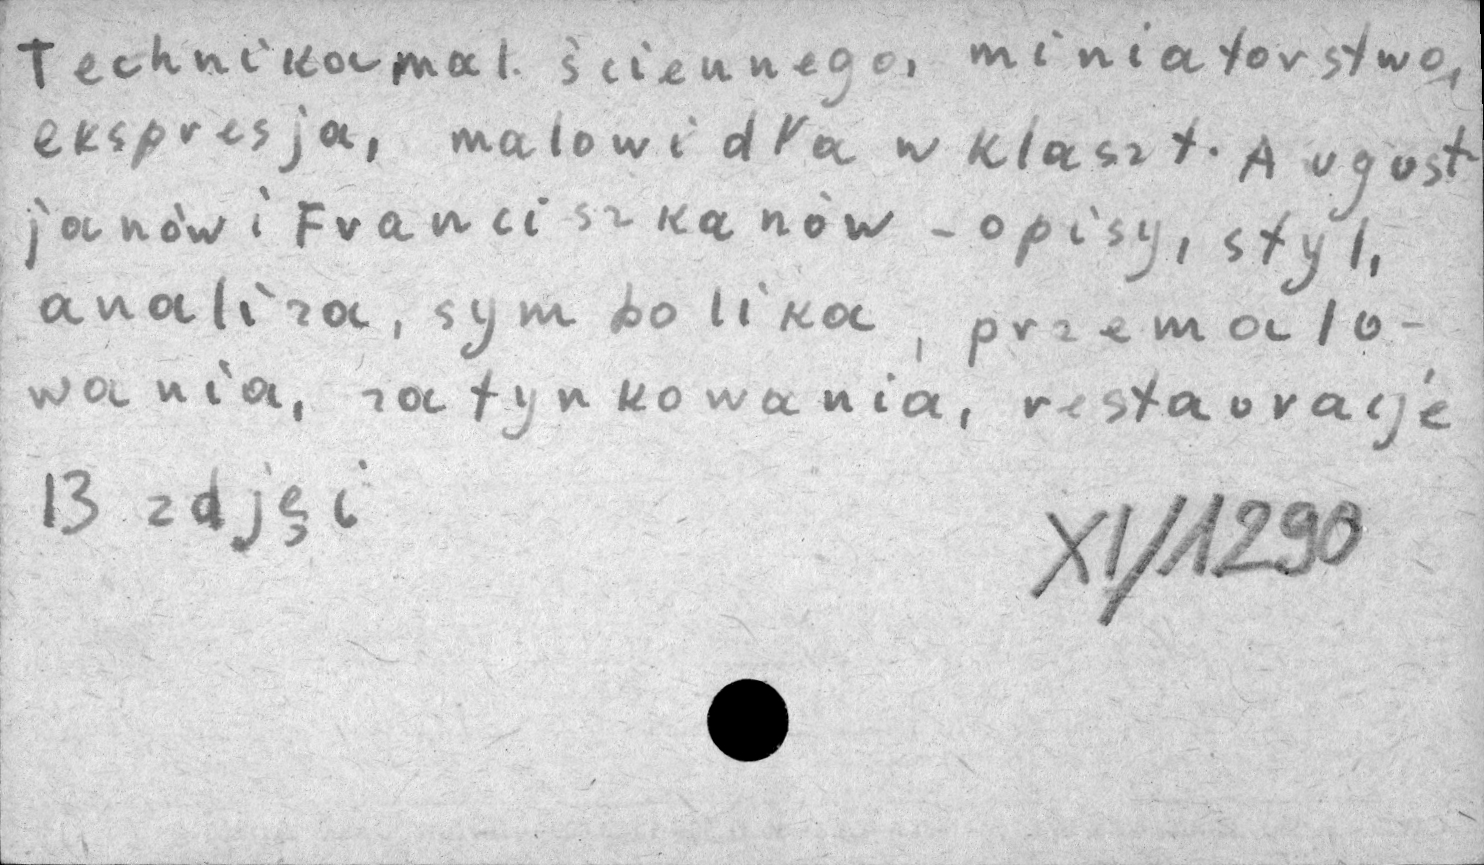 Technika mal. ściennego, miniatorstwo,
ekspresja, malowidła w klaszt. August
janów i Franciszkanów - opisy, styl,
analiza, symbolika, przemalo-
wania, zatynkowania, restauracje
13 zdjęć
XI/1290